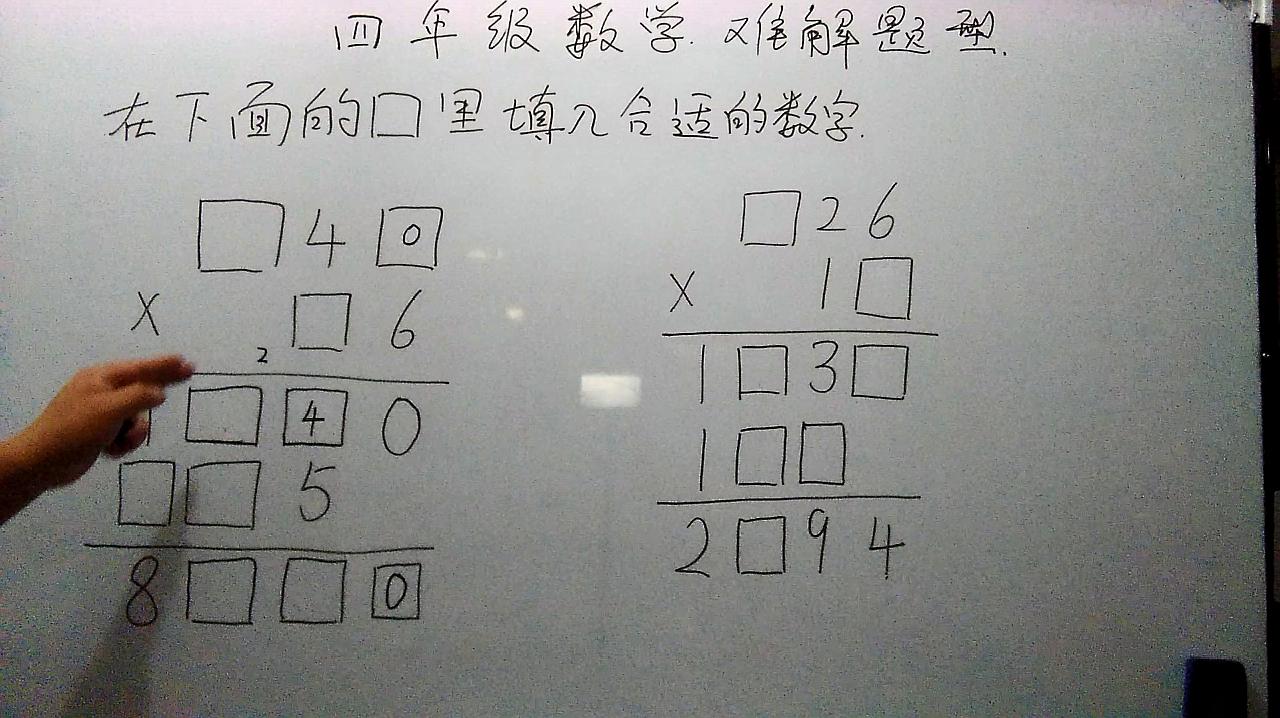 四年级数学.难解题型.
在下面的口里填入合适的数字.
□ 4 0
× □ 6
2
1 □ 4 0
□ □ 5
8 □ □ 0
□ 2 6
× 1 □
1 □ 3 □
1 □ □
2 □ 9 4